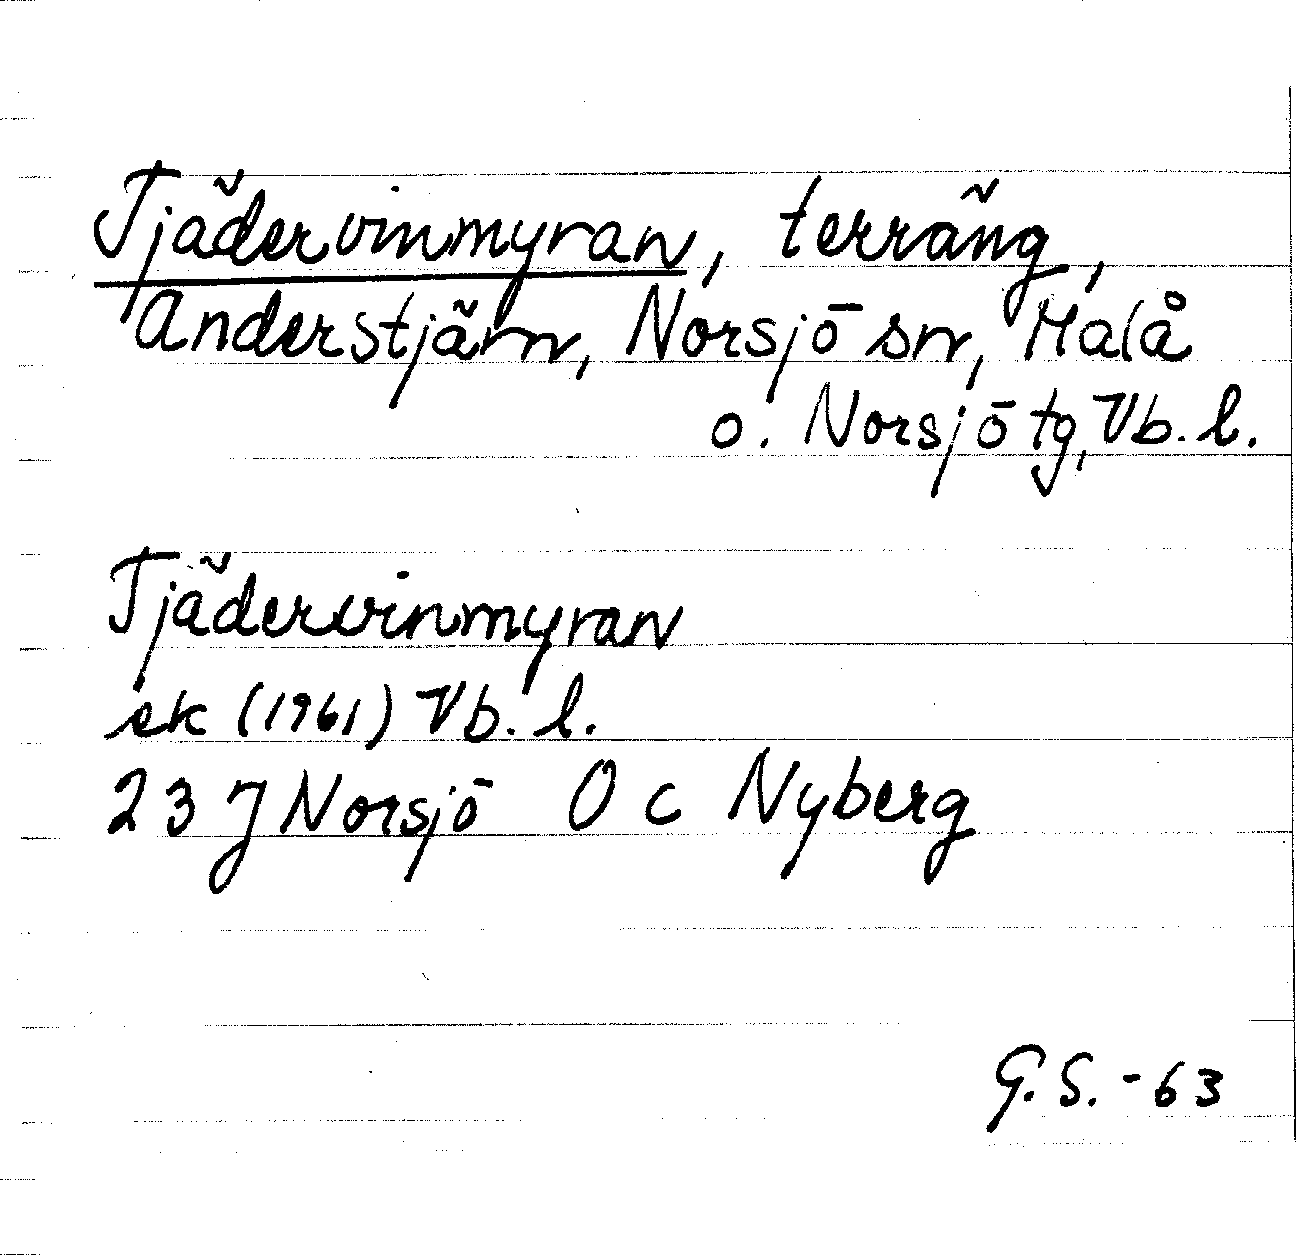 Tjädervinmyran, terräng,
Anderstjärn, Norsjö sn, Malå
o. Norsjö tg, Vb. l.
Tjädervinmyran
ek (1961) Vb. l.
23 J Norsjö O c Nyberg
G. S. - 63